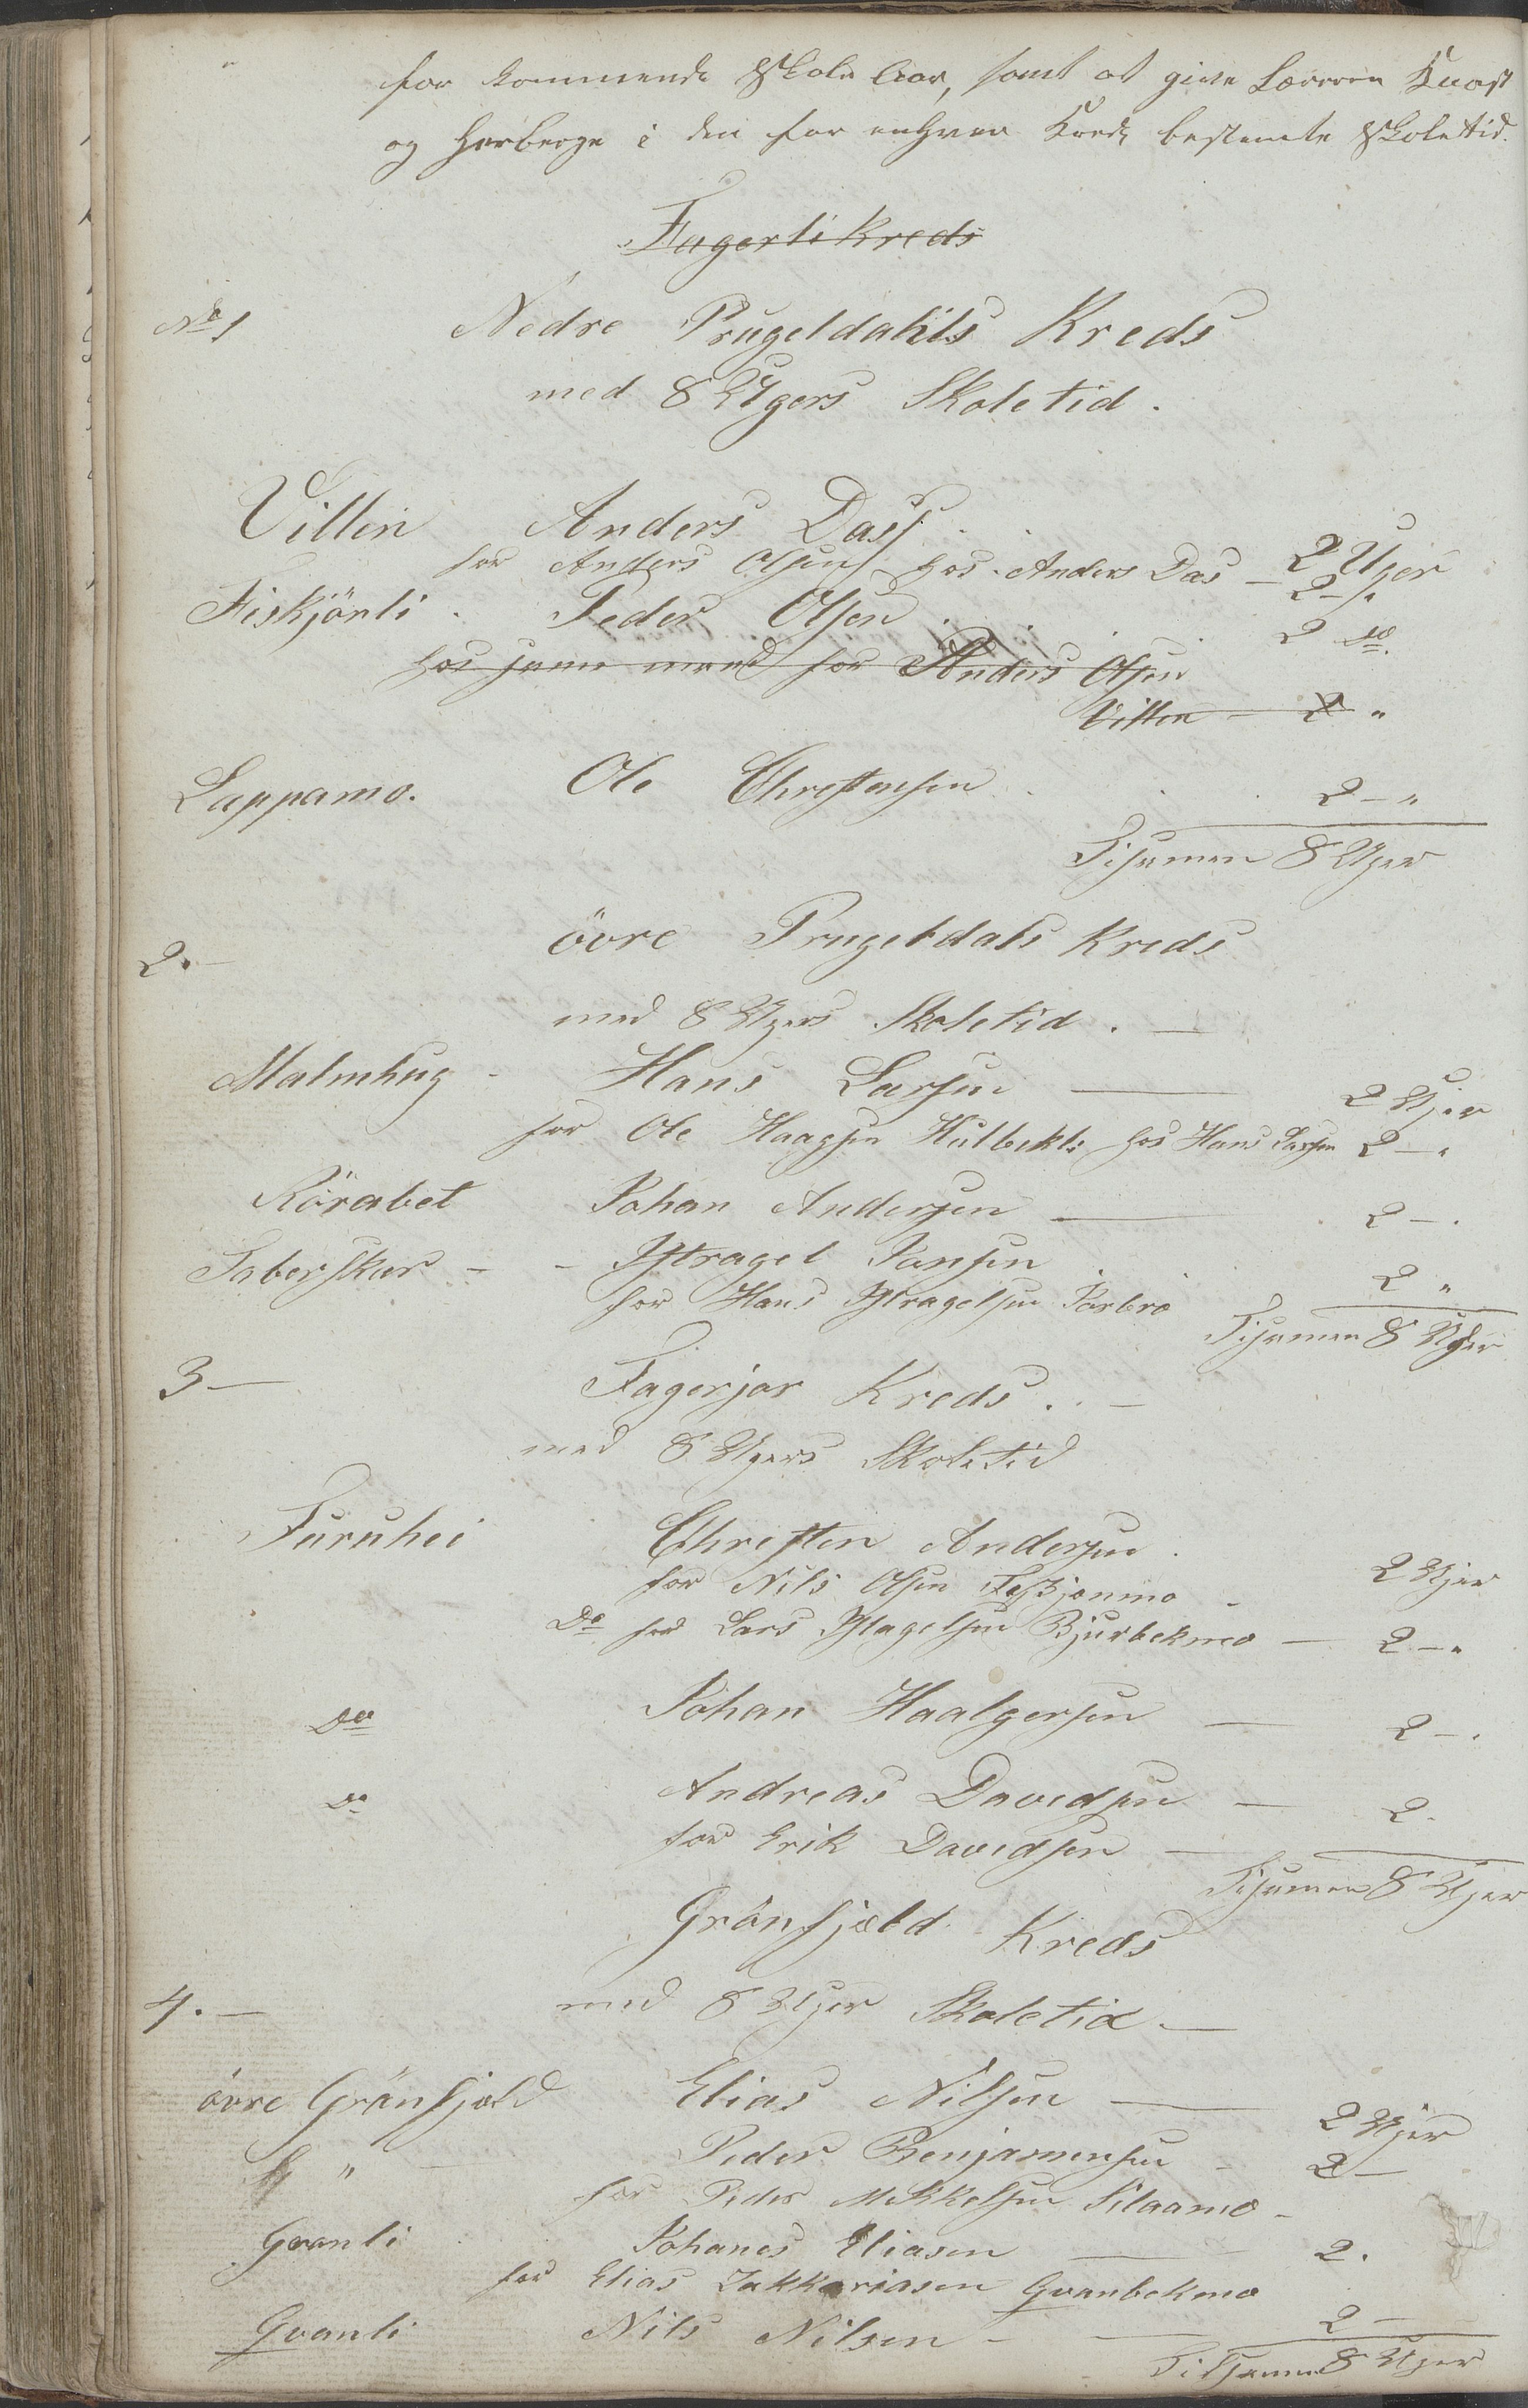 for kommende Skole Aar, samt at give Læreren Kuast
og Herberge i den for enhver Kreds bestemte Skoletid.
Fagerli Kreds
No 1 Nedre Prugeldahls Kreds
med 8 Ugers Skoletid.
Villen Anders Dass . . 2 Uger
for Anders Olsen hos Anders Das – 2 –"
Fiskjönli . Peder Olsen . . . 2 do.
hos samme mand for Anders Olsen
Villen – 2 "
Lappamo. Ole Christensen . . . 2 – "
Tilsamen 8 Uger
2. – övre Prugeldals Kreds
med 8 Ugers Skoletid. –
Malmhug – Hans Larsen — 2 Uger
for Ole Haagsen Hulbekli hos Hans Larsen 2 – "
Rörabet Johan Andersen — 2 – .
Taberskar – – Istragel Jansen . . 2 "
for Hans Istragelsen Forbro
Tilsamen 8 Uger
3 — Fagerjor Kreds . . –
med 8 Ugers Skoletid
Furuhei Christen Andersen .
for Nils Olsen Fiskjönmo – 2 Uger
Do for Lars Istragelsen Bjurbekmo – 2 – "
Do Johan Haalgersen — 2 – .
Do Andreas Davidsen — 2 .
for Erik Davidsen —
Tilsamen 8 Uger
Grönfjeld Kreds
4. — med 8 Uger Skoletid —
övre Grönfjeld Elias Nilsen — 2 Uger
" – Peder Benjamensen – 2 —
for Peder Mikkelsen Silaamo –
Gvanli Johanes Eliasen — 2 .
for Elias Zakkariasen Gvanbekmo
Gvanli Nils Nilsen – — 2 –
Tilsamen 8 Uger